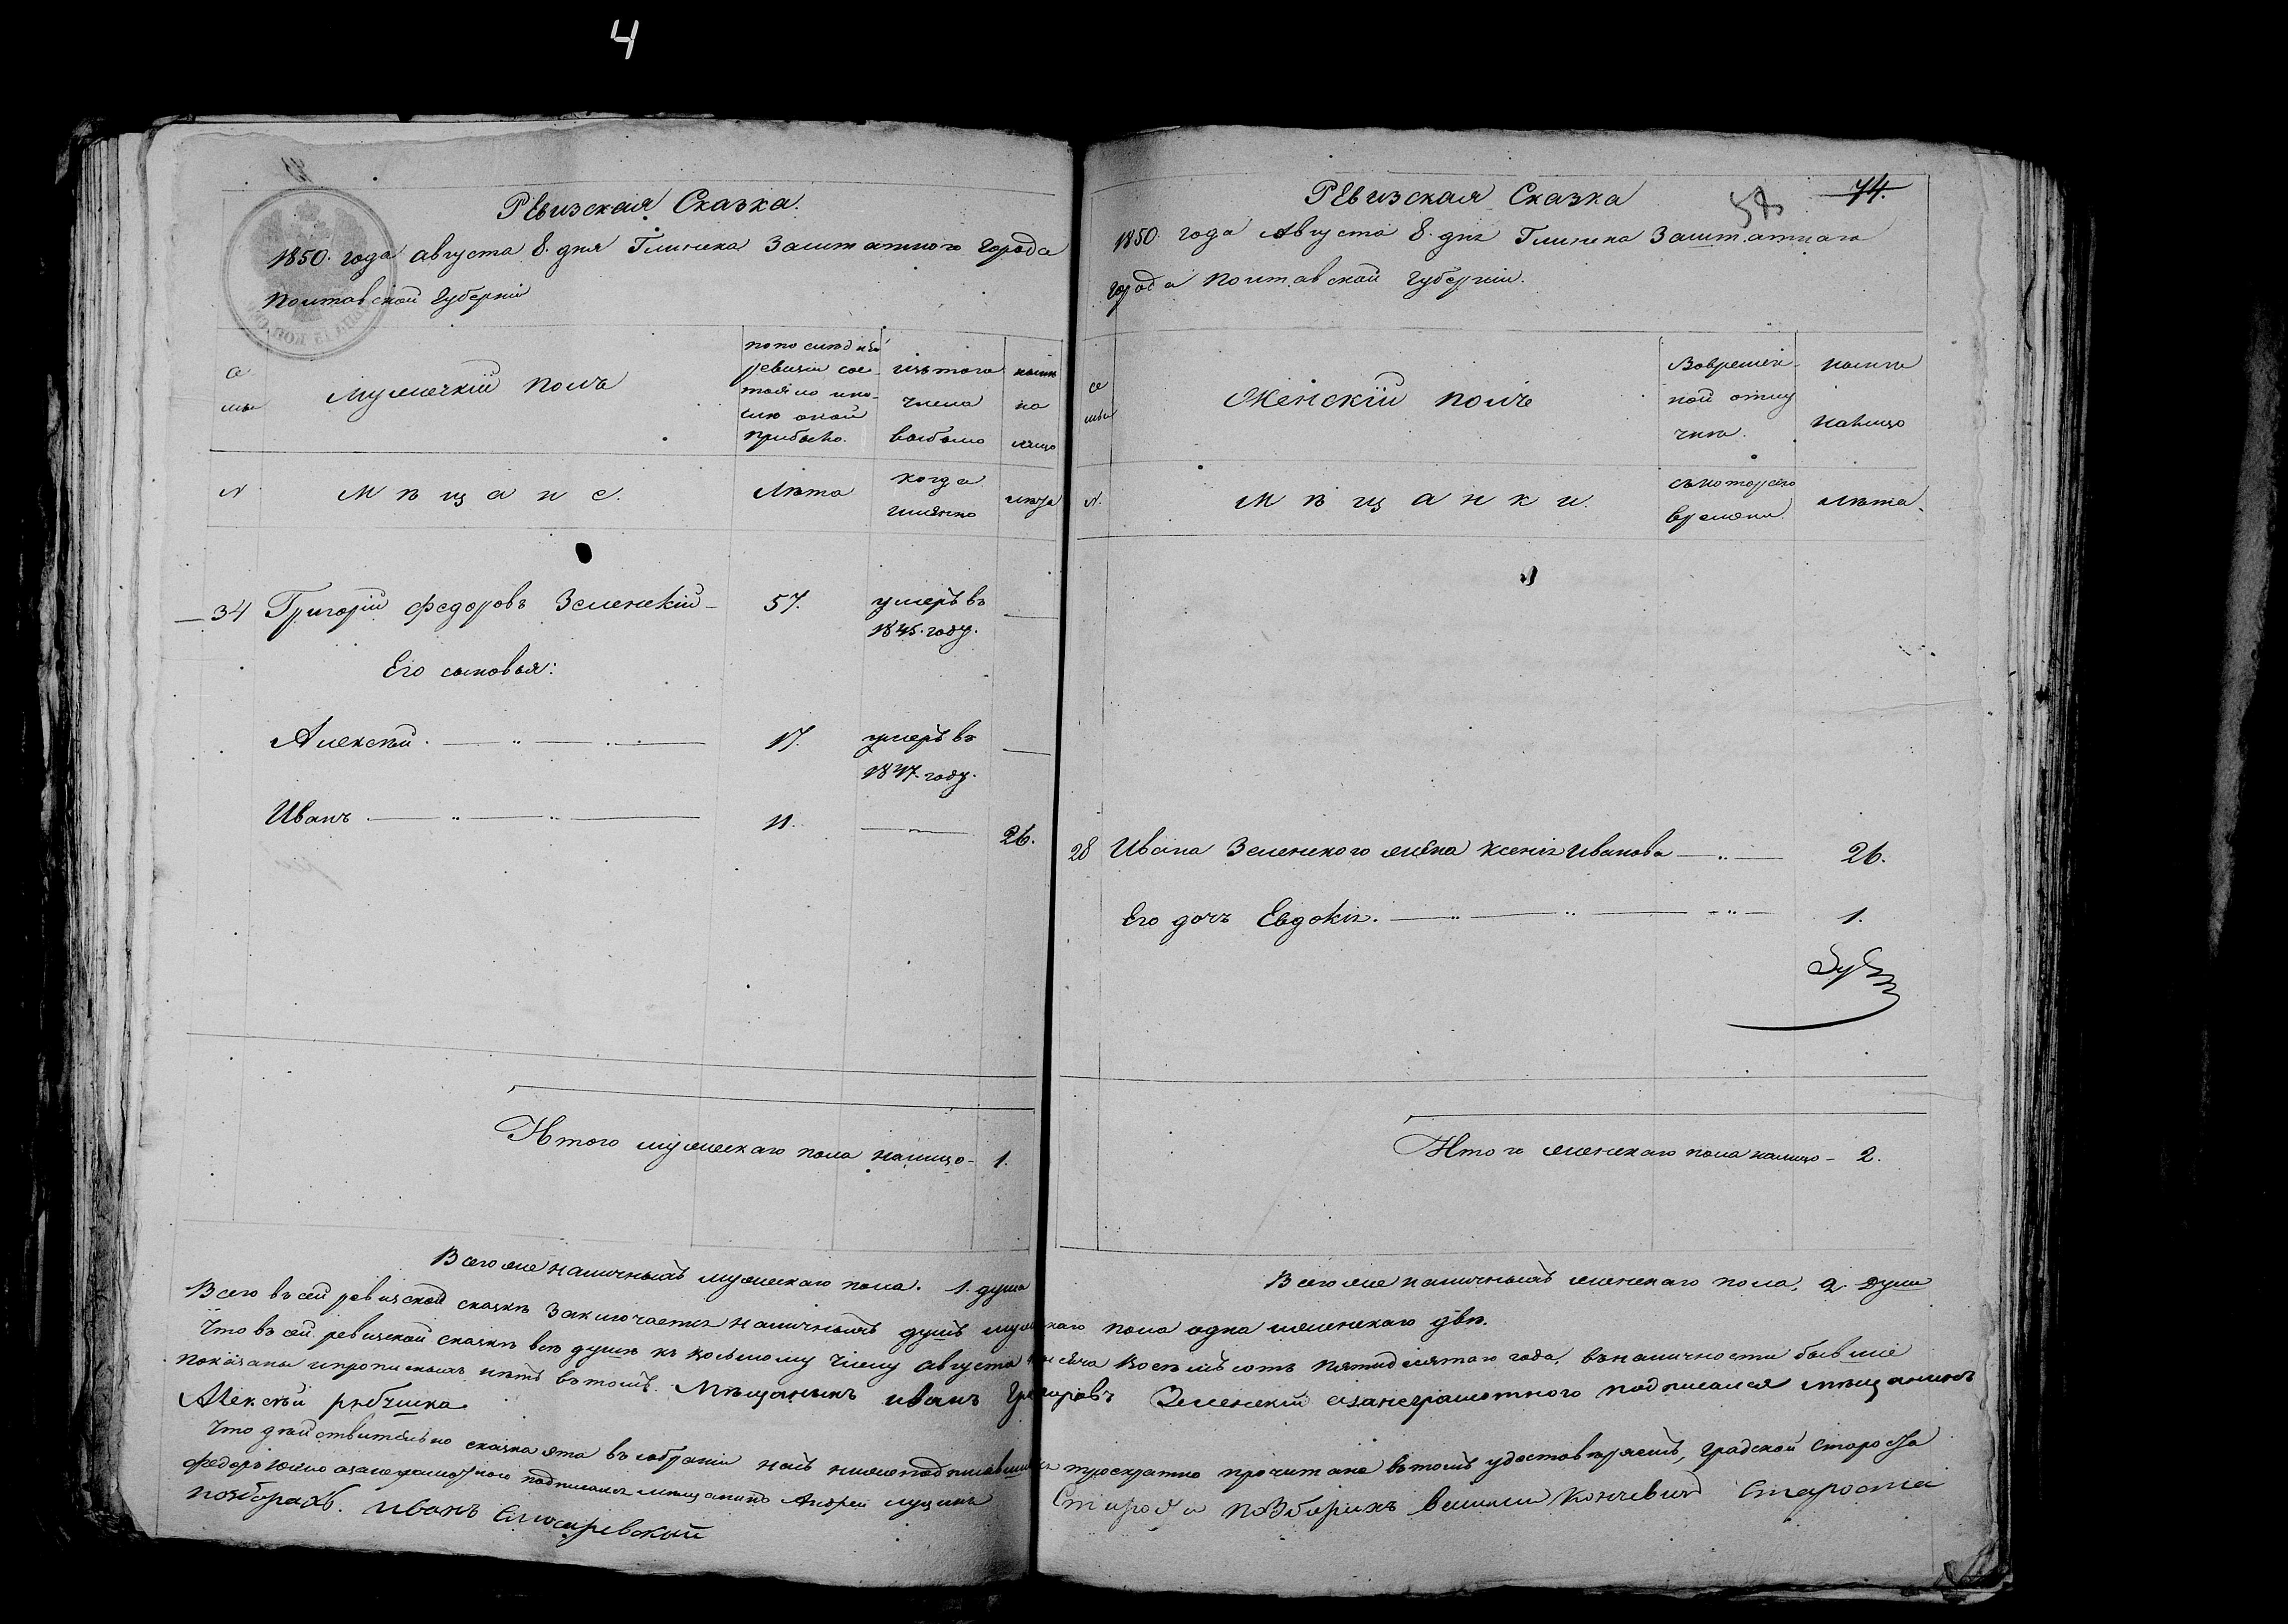 4
Ревизская Сказка.
1850. года августа 8. дня Глинска Заштатного города
Полтавской Губернии
се
мьи
мужеский полъ
по последней
ревизии сос
тояло и по
сле оной
прибыло.
изъ того
числа
выбыло
ныне
на
лицо
№
Мещане.
Лета
когда
именно
лета
34 Григорій Федоровъ Зеленскій 57. умеръ въ
1845. году.
Его сыновья:
Алексей. 17. умеръ въ
1847. году.
Иванъ 11. 26.
Итого мужескаго пола налицо - 1.
Всего же наличныхъ мужескаго пола. 1. душа
Ревизская Сказка
58
74.
1850. года Августа 8. дня Глинска Заштатнаго
города Полтавской Губерніи.
се
мьи
Женскій полъ
Вовремен
ной отлу
чке.
ныне
налицо
№.
Мещанки.
съ котораго
времени
лета.
28 Ивана Зеленского жена Ксенія Иванова 26.
Его дочь Евдокія. 1.
Итого женскаго пола налицо - 2.
Всего же наличныхъ женскаго пола, 2 души
Всего въ сей ревизской сказке заключается наличныхъ душъ мужескаго пола одна женскаго две.
Что въ сей ревизской сказке все души къ восьмому числу августа тысяча восемьсотъ пятидесятаго года, въ наличности бывшие
показаны и прописныхъ нетъ въ томъ. Мещанинъ иванъ Григоровъ Зеленскій а за неграмотного подписался мещанинъ
Алексей рябчика
Что действительно сказка эта въ собраніи насъ нижеподписавшихся троекратно прочитана въ томъ удостоверяемъ, градской староста
Федоръ а за неграмотного подписался мещанинъ Андрей Староста
иванъ